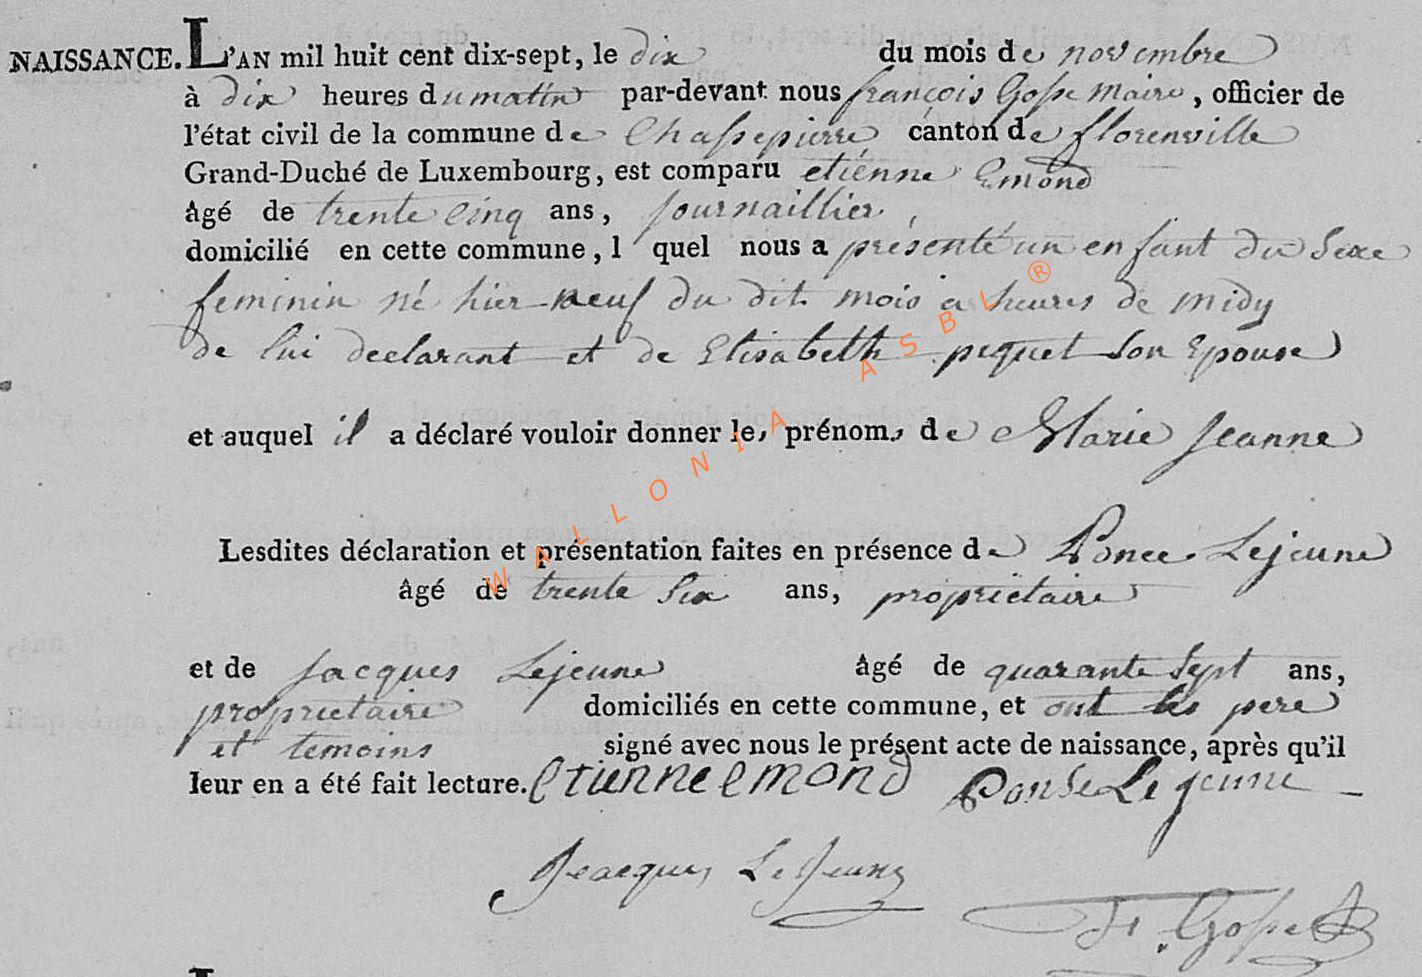 NAISSANCE. L'AN mil huit cent dix-sept, le dix du mois de novembre
à dix heures du matin par-devant nous françois Gosse Maire, officier de
l'état civil de la commune de Chassepierre canton de florenville
Grand-Duché de Luxembourg, est comparu etiénne Emond
âgé de trente cinq ans, journaillier,
domicilié en cette commune, l quel nous a présenté un enfant du Sexe
feminin né hier neuf du dit mois a heures de midy
de lui declarant et de Elisabeth pequet Son Epouse
et auquel il a déclaré vouloir donner le, prénom, de Marie Jeanne
Lesdites déclaration et présentation faites en présence de Ponce Lejeune
âgé de trente Six ans, propriétaire
et de Jacques Lejeune âgé de quarante Sept ans,
proprietaire domiciliés en cette commune, et ont les pere
et temoins signé avec nous le présent acte de naissance, après qu'il
leur en a été fait lecture. etienne emond Ponse Le jeune
Jacques Le Jeune
fr. Gosse
WALLONIA ASBL ®